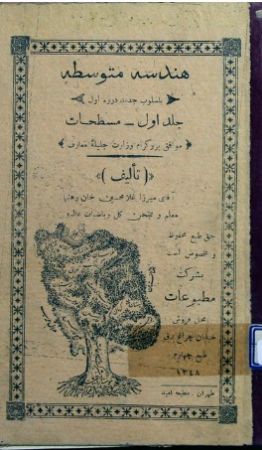 هندسه متوسطه
باسلوب جدید دوره اول
جلد اول – مسطحات
موافق پروگرام وزارت جلیله معارف
«(تألیف)»
آقای میرزا غلامحسین خان رهنما
معلم و ممتحن کل ریاضیات عالیه
حق طبع محفوظ
و مخصوص است
بشرکت
مطبوعات
محل فروش
خیابان چراغ برق
طبع چهارم
۱۳۴۸
طهران . مطبعه